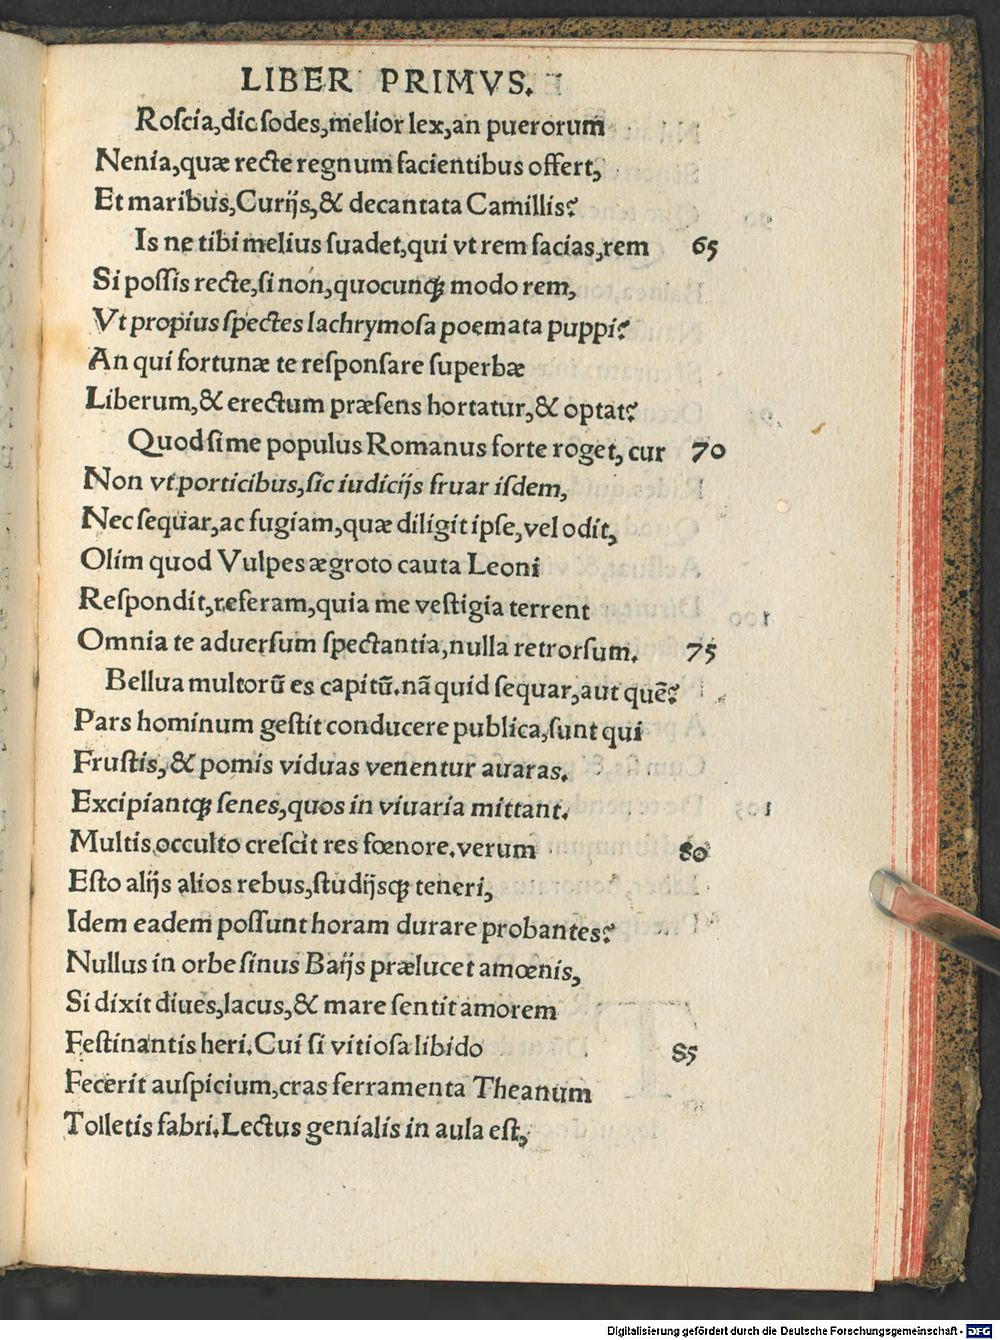 LIBER PRIMVS.
Roſcia,dic ſodes,melior lex,an puerorum
Nenia,quæ recte regnum facientibus offert,
Et maribus,Curijs,& decantata Camillis?
Is ne tibi melius ſuadet,qui vt rem facias,rem 65
Si poſſis recte,ſi non,quocunqꝫ modo rem,
Vt propius ſpectes lachrymoſa poemata puppi?
An qui fortunæ te reſponſare ſuperbæ
Liberum,& erectum præſens hortatur,& optat?
Quod ſi me populus Romanus forte roget, cur 70
Non vt porticibus,ſic iudicijs fruar iſdem,
Nec ſequar,ac fugiam,quæ diligit ipſe,vel odit,
Olim quod Vulpes ægroto cauta Leoni
Reſpondit,referam,quia me veſtigia terrent
Omnia te aduerſum ſpectantia,nulla retrorſum. 75
Bellua multorū es capitū.nā quid ſequar,aut quē?
Pars hominum geſtit conducere publica,ſunt qui
Fruſtis,& pomis viduas venentur auaras.
Excipiantqꝫ ſenes,quos in viuaria mittant.
Multis occulto creſcit res fœnore.verum 80
Eſto alijs alios rebus,ſtudijsqꝫ teneri,
Idem eadem poſſunt horam durare probantes?
Nullus in orbe ſinus Baijs prælucet amœnis,
Si dixit diues,lacus,& mare ſentit amorem
Feſtinantis heri.Cui ſi vitioſa libido 85
Fecerit auſpicium,cras ferramenta Theanum
Tolletis fabri.Lectus genialis in aula eſt,
Digitalisierung gefördert durch die Deutsche Forschungsgemeinschaft - DFG